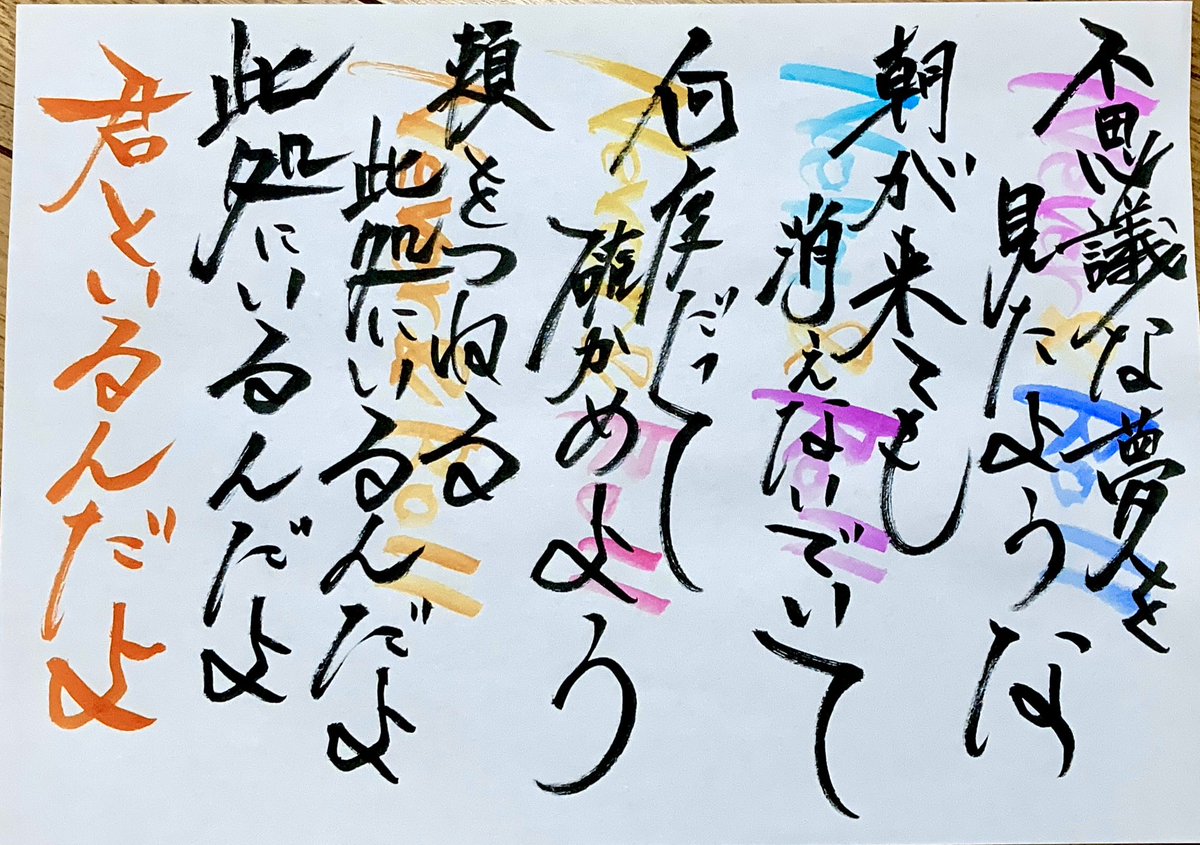 不思議な夢を
見たような
朝が来ても
消えないでいて
何度だって
確かめよう
頬をつねる
此処にいるんだよ
此処にいるんだよ
君といるんだよ